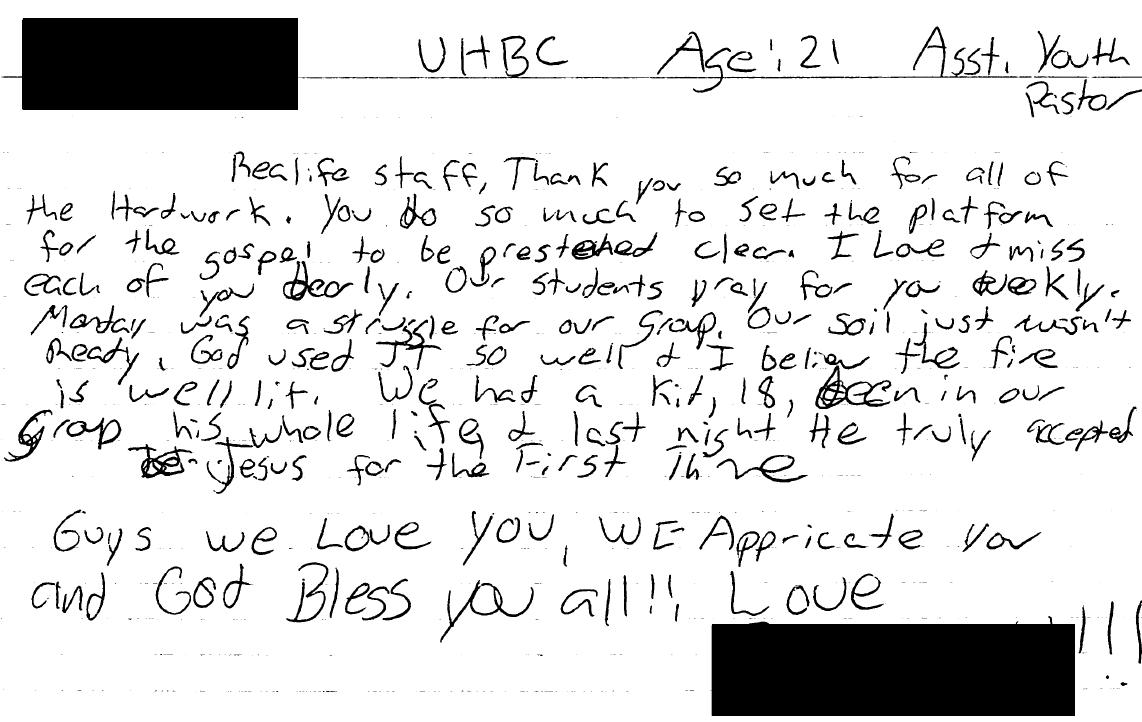 UHBC Age: 21 Asst. Youth
Pastor
Realife staff, Thank you so much for all of
the Hardwork. You do so much to set the platform
for the gospel to be prestened clear. I Love & miss
each of you dearly. Our students pray for you weekly.
Monday was a struggle for our Group. Our soil just wasn't
Ready. God used JT so well & I believe the fire
is well lit. We had a Kid, 18, been in our
group his whole life & last night He truly accepted
Jesus for the First Time
Guys we Love you, WE Appricate you
and God Bless you all!!, Love
!!!